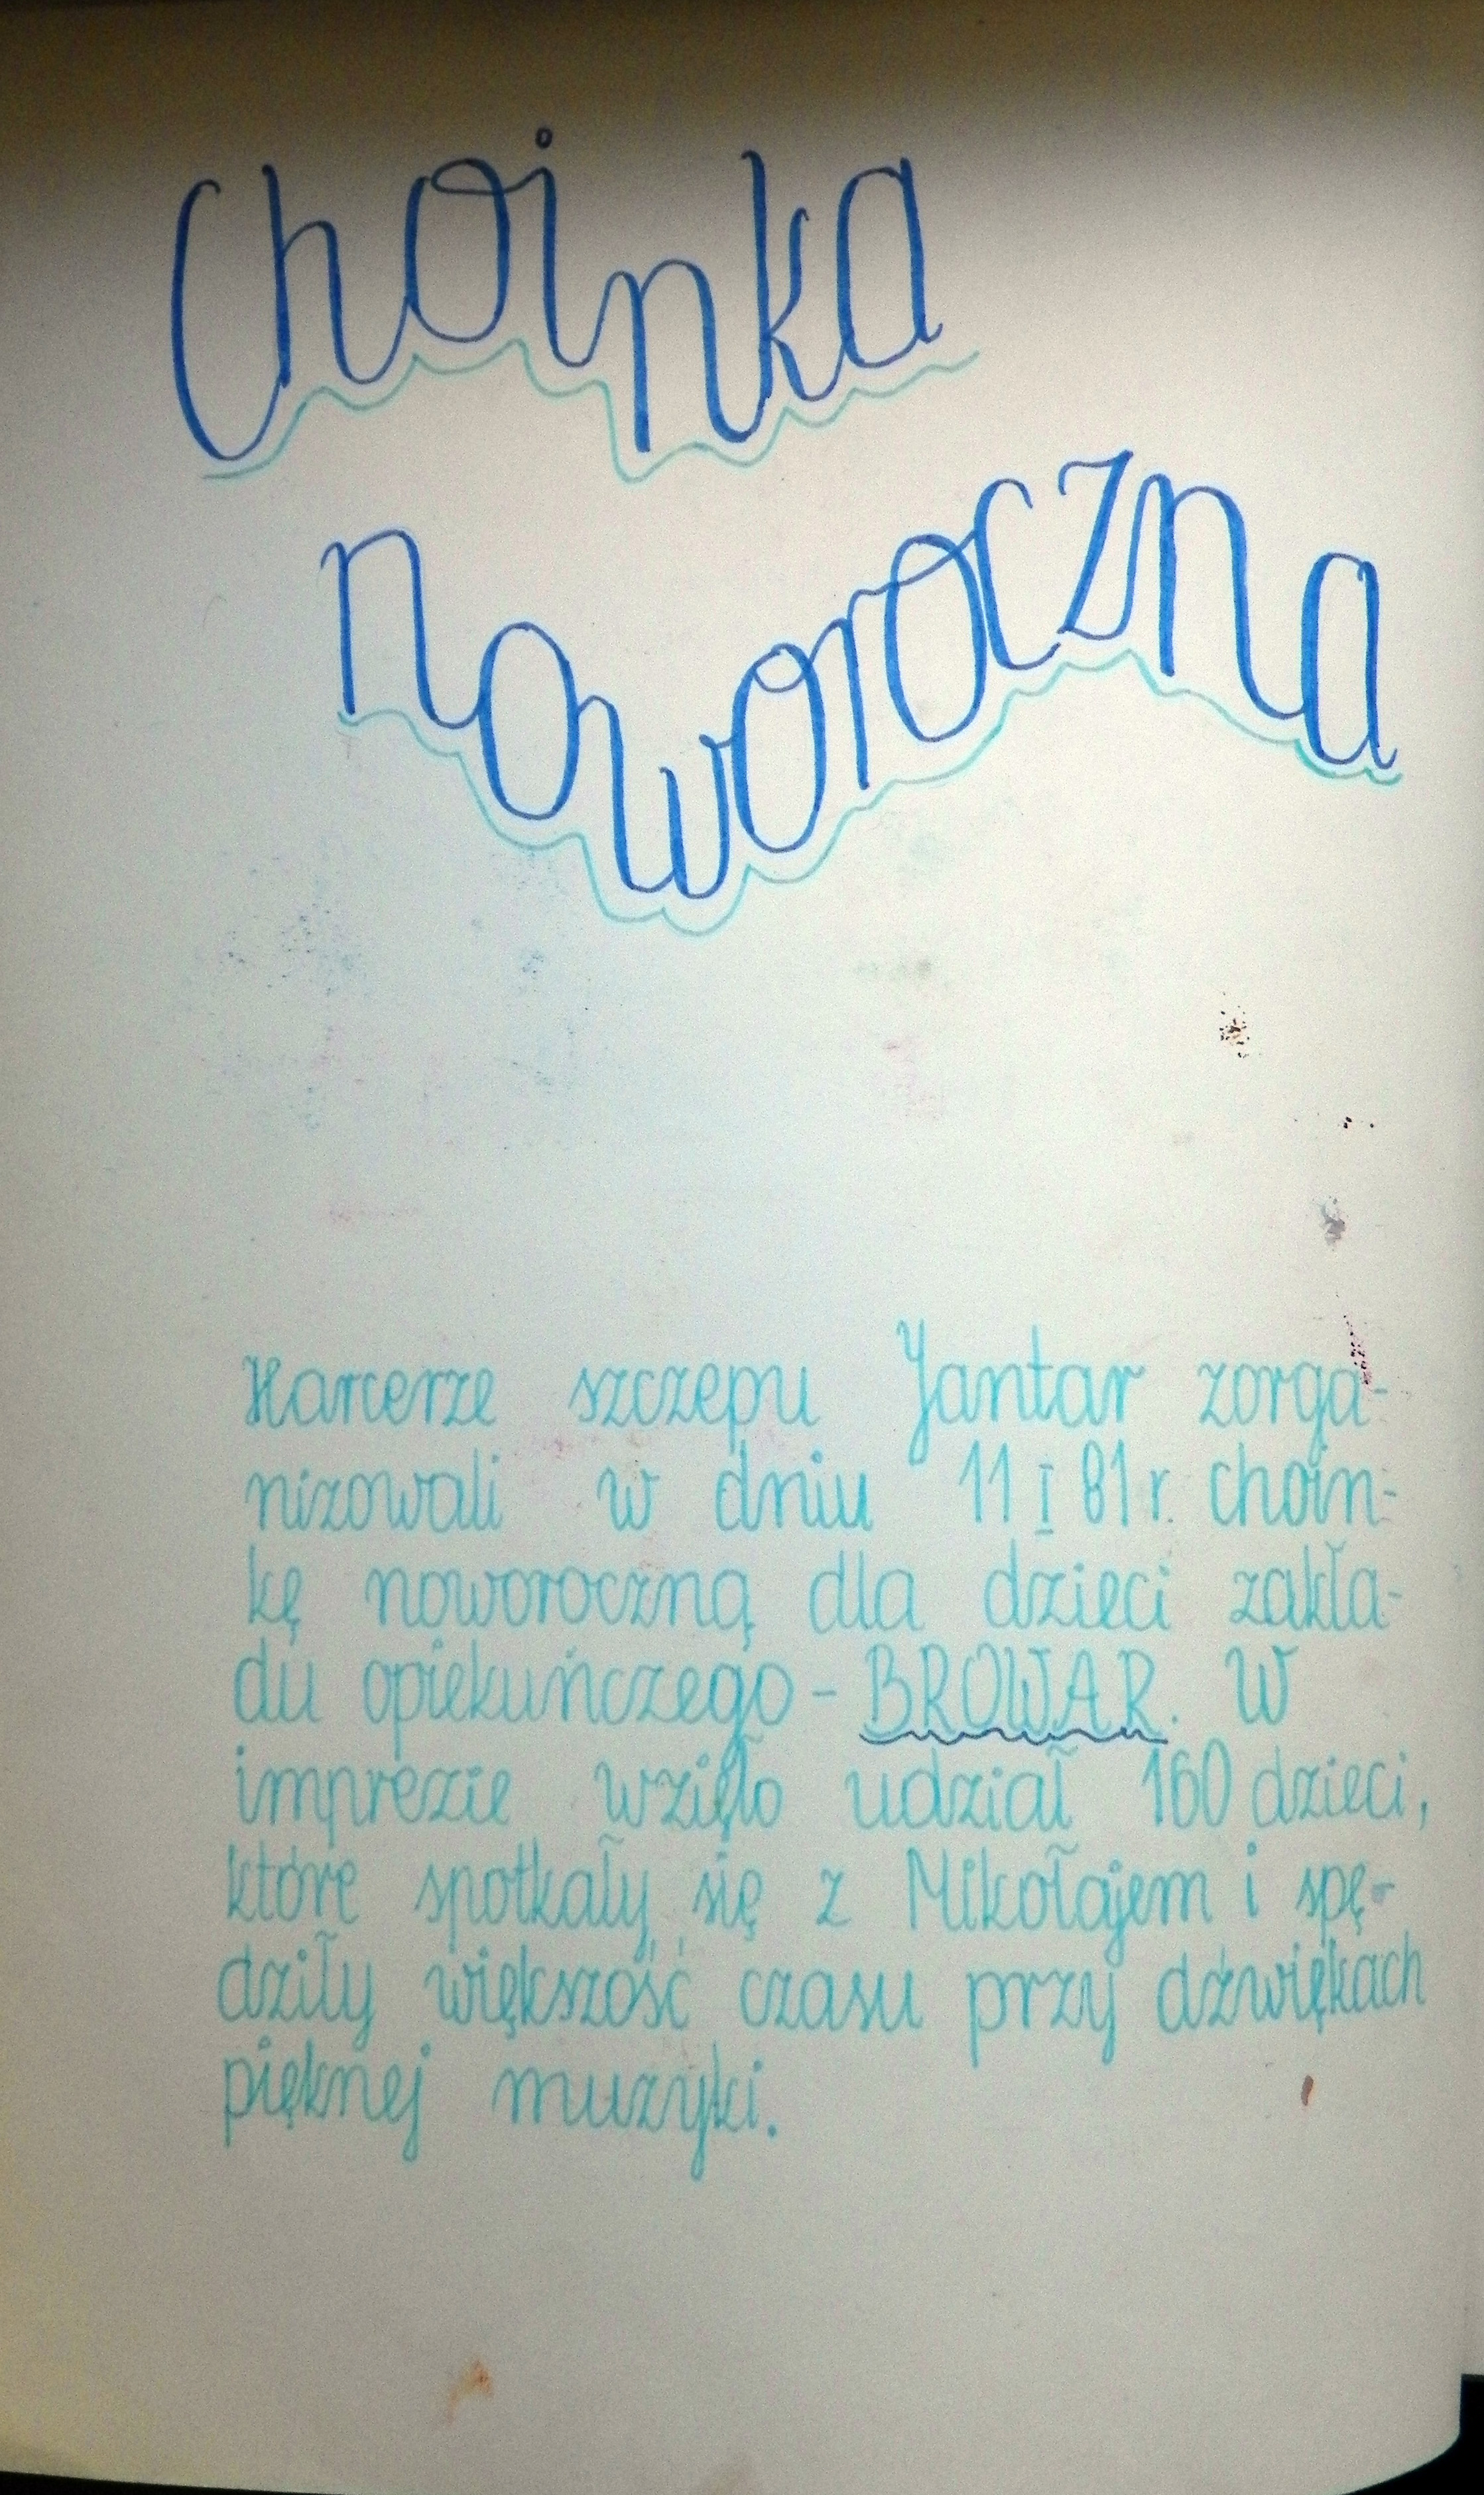 Choinka
noworoczna
Harcerze szczepu Jantar zorga-
nizowali w dniu 11 I 81 r. choin-
kę noworoczną dla dzieci zakła-
du opiekuńczego - BROWAR. W
imprezie wzięło udział 160 dzieci,
które spotkały się z Mikołajem i spę-
dziły większość czasu przy dźwiękach
pięknej muzyki.